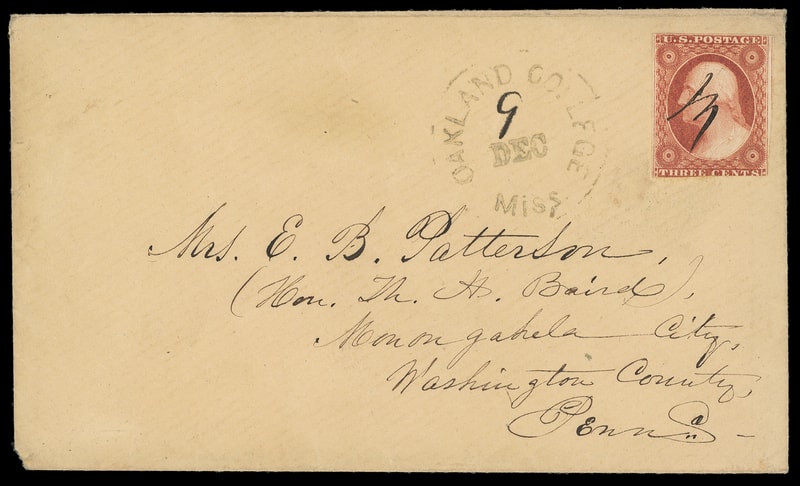 U.S. POSTAGE
THREE CENTS
OAKLAND COLLEGE
9
DEC
Miss
Mrs. E. B. Patterson,
(Hon. Th. H. Baird),
Monongahela City,
Washington County,
Penna